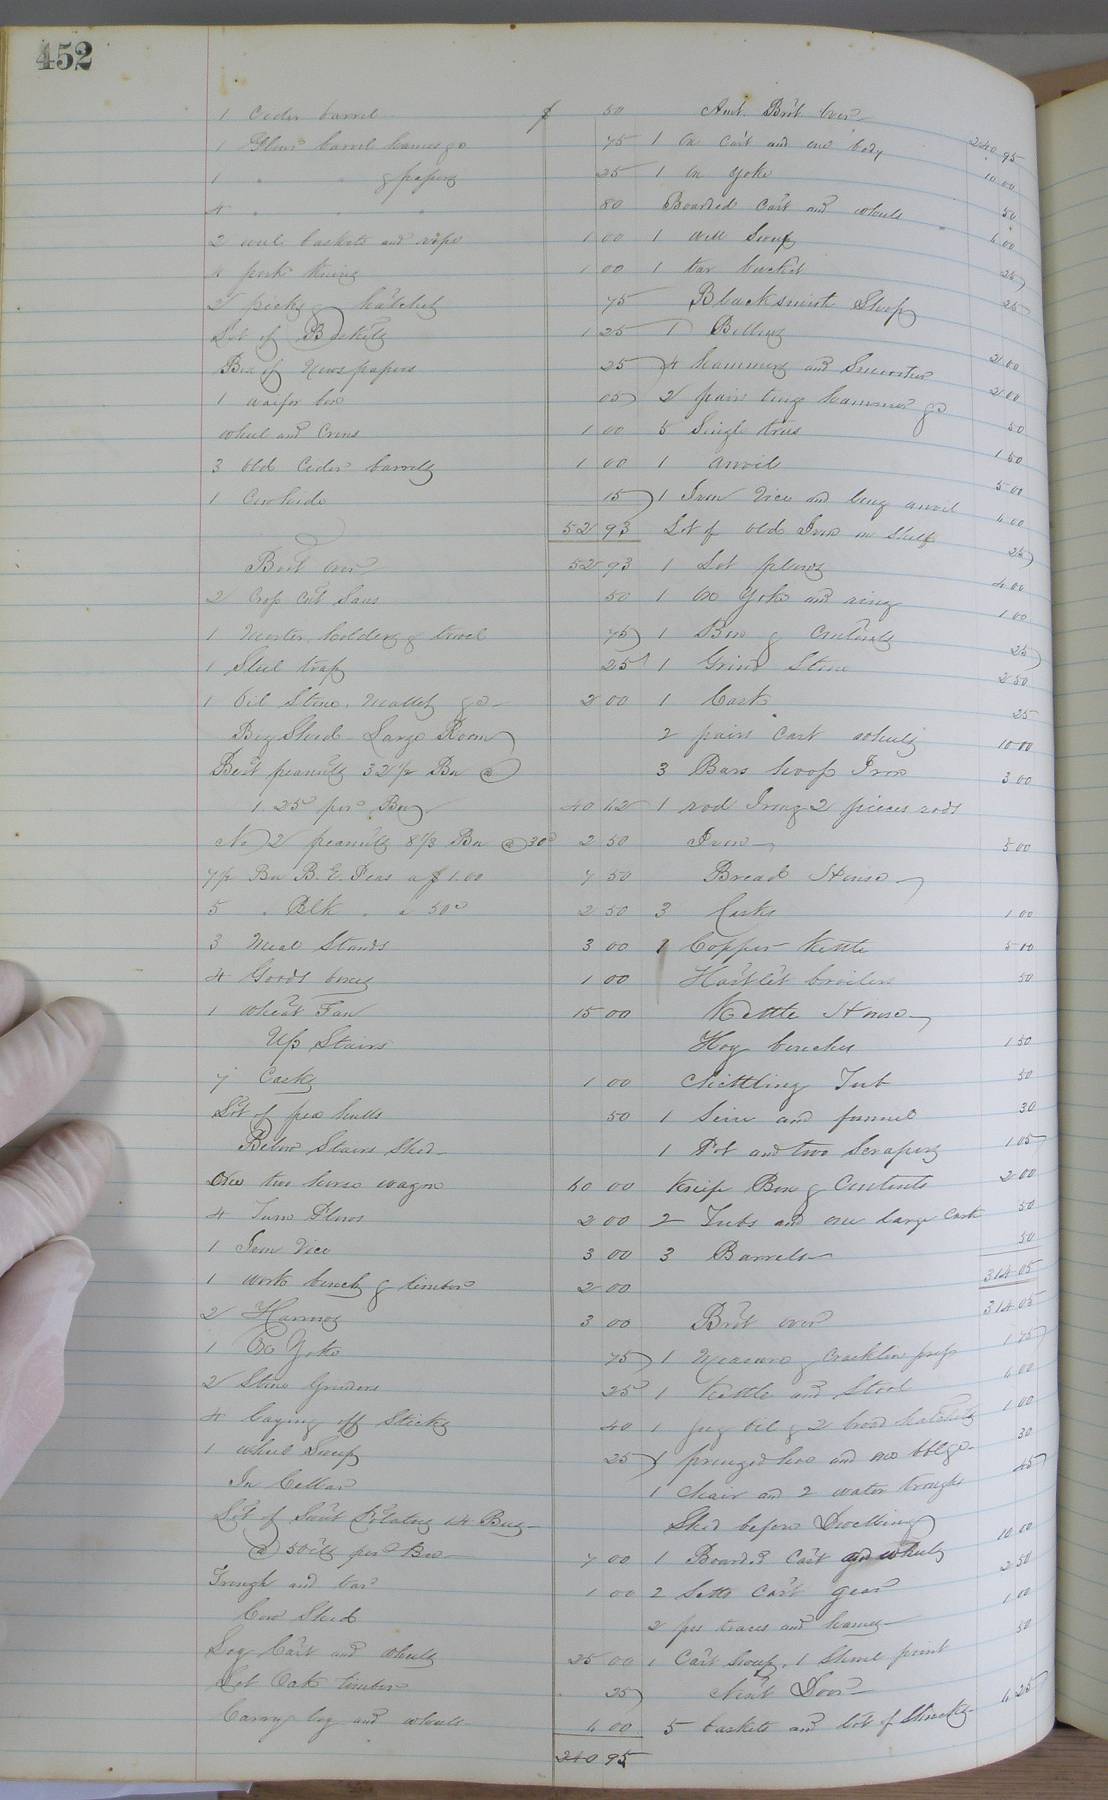 452
1 Cider barrel $ 50
1 Flour barrel hames &c 75
1 " " & papers 25
4 " " " 80
2 baskets and rope 1 00
4 pork 1 00
2 picks & hatchet 75
Lot of Baskets 1 25
Box of News papers 25
1 waifer box 05
wheel and 1 00
3 old Cider barrels 1 00
1 Cowhide 15
52 93
Brot over 52 93
2 Crop Cut Saws 50
1 & trowel 75
1 Steel trap 25
1 Oil Stone, Mallet &c 2 00
Big Shed Large Room
Best peanuts 32 1/2 Bu @
1.25 per Bu 40 62
No 2 peanuts 8 1/3 Bu @ 30c 2 50
7 1/2 Bu B. E. Peas a $1.00 7 50
5 " Blk " a 50c 2 50
3 Meal Stands 3 00
4 Goods boxes 1 00
1 Wheat Fan 15 00
Up Stairs
7 Casks 1 00
Lot of pea hulls 50
Below Stairs Shed
One two horse wagon 60 00
4 Turn Plows 2 00
1 Iron Vice 3 00
1 work bench & timber 2 00
2 Harrows 3 00
1 Ox Yoke 75
2 Stone Grinders 25
4 laying off Sticks 40
1 wheel Sweep 25
In Cellar
Lot of Sweet Potatoes 14 Bus
@ 50cts per Bu 7 00
Trough and bar 1 00
Cow Shed
Log Cart and wheels 25 00
Lot Oak timber 25
Carry log and wheels 4 00
240 95
Amt. Brot Over 240 95
1 Ox Cart and one body 10 00
1 Ox Yoke 50
Boarded Cart and wheels 6 00
1 well Sweep 25
1 tar bucket 25
Blacksmith Shop
1 Bellows 20 00
4 hammers and 2 00
2 pair tongs hammer &c 50
5 Single trees 1 50
1 anvil 5 00
1 Iron Vice and long anvil 6 00
Lot of old Iron on Shelf 25
1 Lot plows 4 00
1 Ox Yoke and ring 1 00
1 Box & Contents 25
1 Grind Stone 2 50
1 Cask 25
2 pairs Cart wheels 10 00
3 Bars hoop Iron 3 00
1 rod Irons 2 pieces rods
Iron 5 00
Bread House
3 Casks 1 00
1 Copper Kettle 5 00
broilers 50
Kettle House
Hog benches 1 50
Chittling Tub 50
1 Seive and funnel 30
1 Pot and two Scrapers 1 05
Knife Box & Contents 2 00
2 Tubs and one large Cask 50
3 Barrels 50
314 05
Brot over 314 05
1 Measure & Cracklin press 1 75
1 Kettle and Stool 6 00
1 Jug Oil & 2 broad hatchets 1 00
1 hoe and bbl &c 30
1 Chair and 2 water troughs 45
Shed before Dwelling
1 Boarded Cart and wheels 10 00
2 Setts Cart gear 2 50
2 prs traces and hames 1 00
1 Cart 1 Shovel point 50
Next Door
5 baskets and lot of 4 25